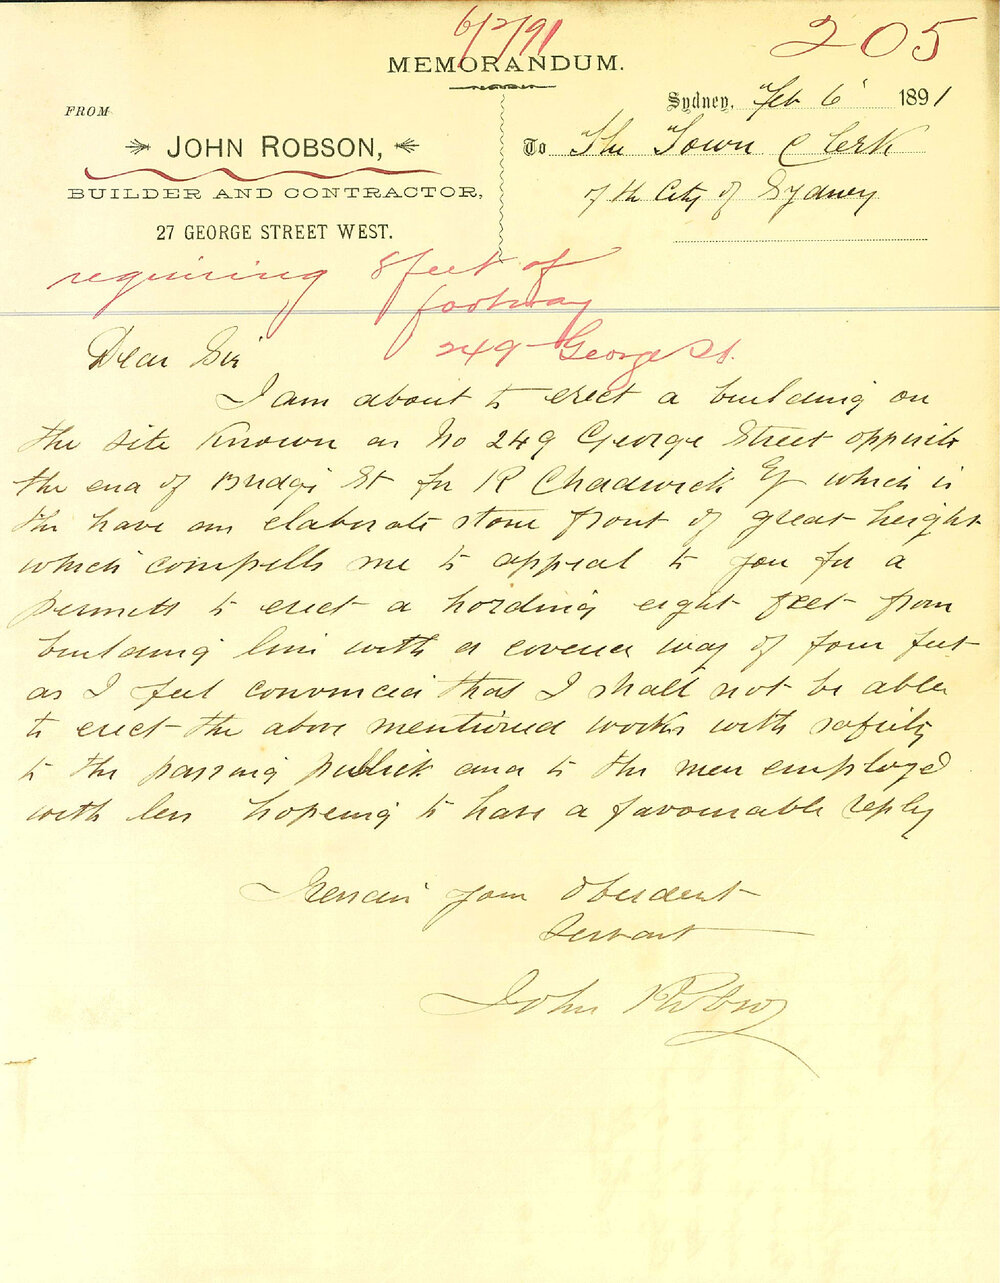 6/2/91
205
MEMORANDUM.
FROM
JOHN ROBSON,
BUILDER AND CONTRACTOR,
27 GEORGE STREET WEST.
Sydney, Feb 6 1891
To The Town Clerk
of the City of Sydney
requiring 8 feet of
footway
249 George St.
Dear Sir
I am about to erect a building on
the site known as No 249 George Street opposite
the end of Bridge St for R Chadwick Esq which is
the have an elaborate stone front of great height
which compells me to appeal to you for a
permitt to erect a hording eight feet from
building line with a covered way of four feet
as I feel convinced that I shall not be able
to erect the above mentioned works with safity
to the passing publick and to the men employed
with less hopeing to have a favourable reply
I Remain your Oberdent
Servant
John Robson